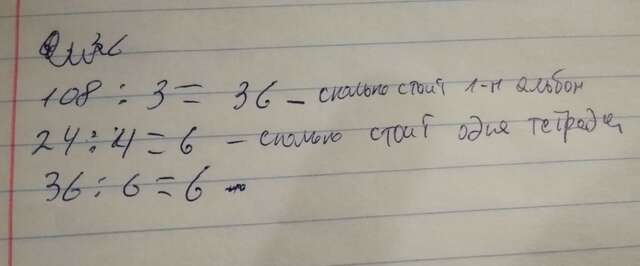 108 : 3 = 36 – сколько стоит 1-н альбон
24 : 4 = 6 – сколько стоит одна тетрадь
36 : 6 = 6 –